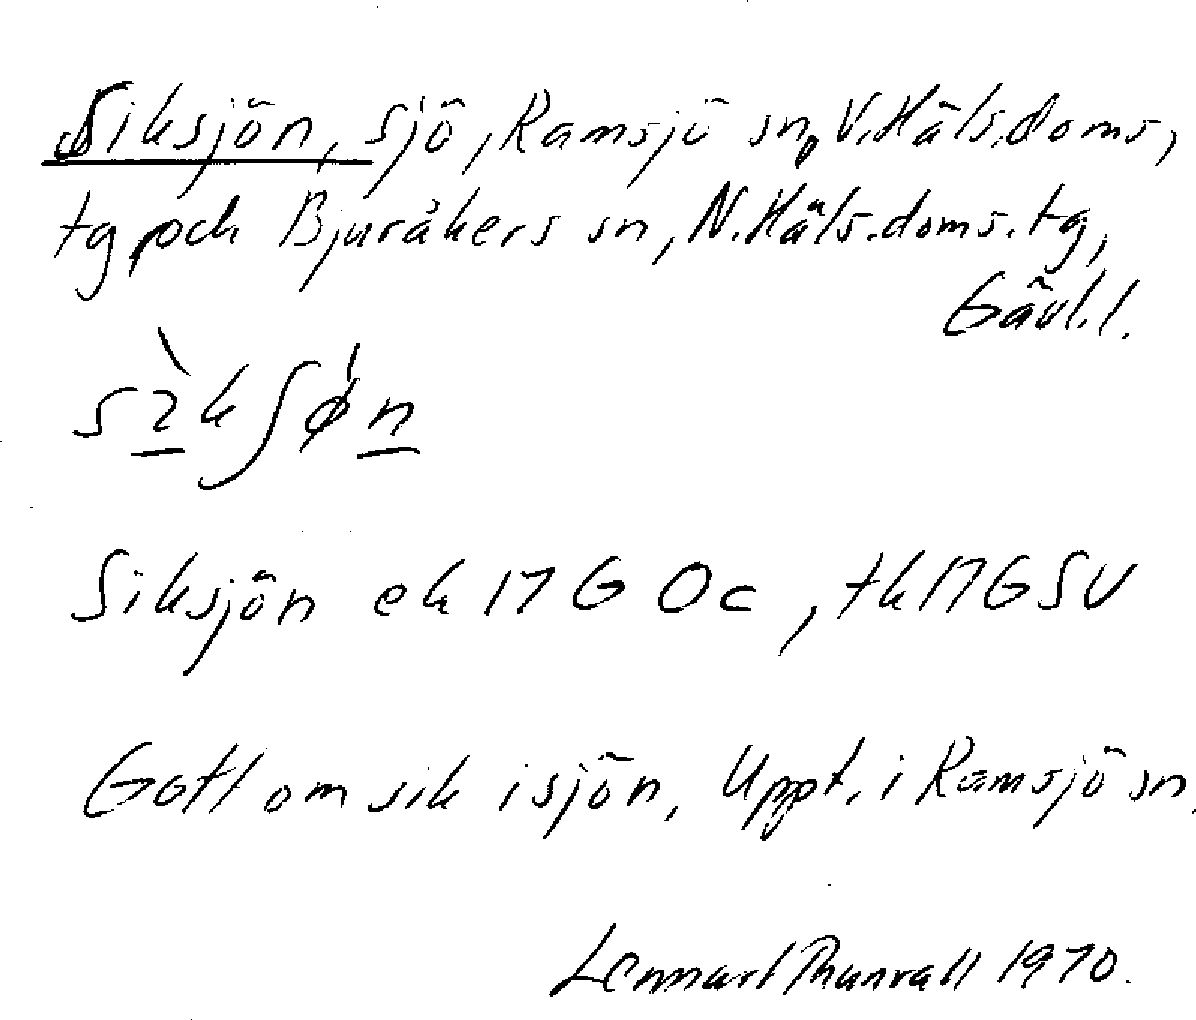 Siksjön, sjö, Ramsjö sn, V. Häls. doms,
tg och Bjuråkers sn, N. Häls. doms. tg,
Gävl. l.
Siksjön ek 17G Oc, tk 17G SV
Gott om sik i sjön. Uppt. i Ramsjö sn.
Lennart Thunvall 1970.